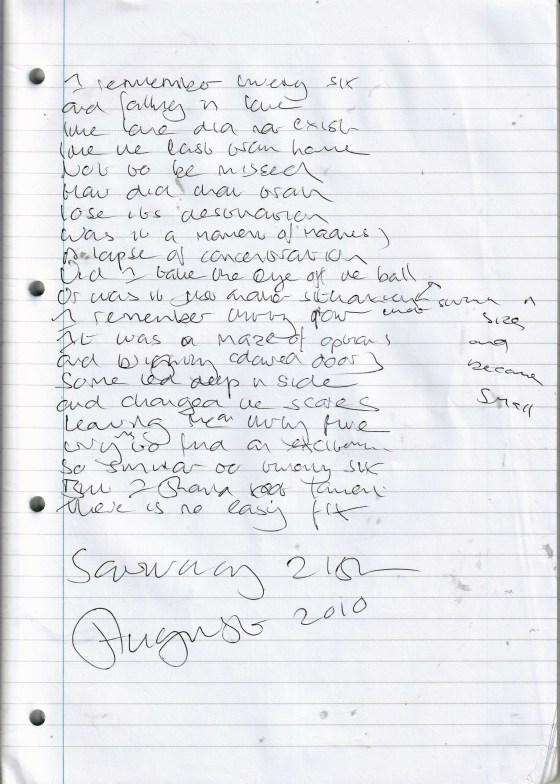 I remember twenty six
and falling in love
like love did not exist
like the last train home
Not to be missed
How did that train
lose its destination
was it a moment of madness
A lapse of concentration
Did I take the eye off the ball
Or was it just another situation that shrunk in
size
and
became
small
I remember thirty four
It was a maze of options
and brightly coloured doors
Some led deep inside
and changed the scales
Leaving me thirty five
trying to find an
So similar to twenty six
But I
there is no easy fix
Saturday 21st
August 2010